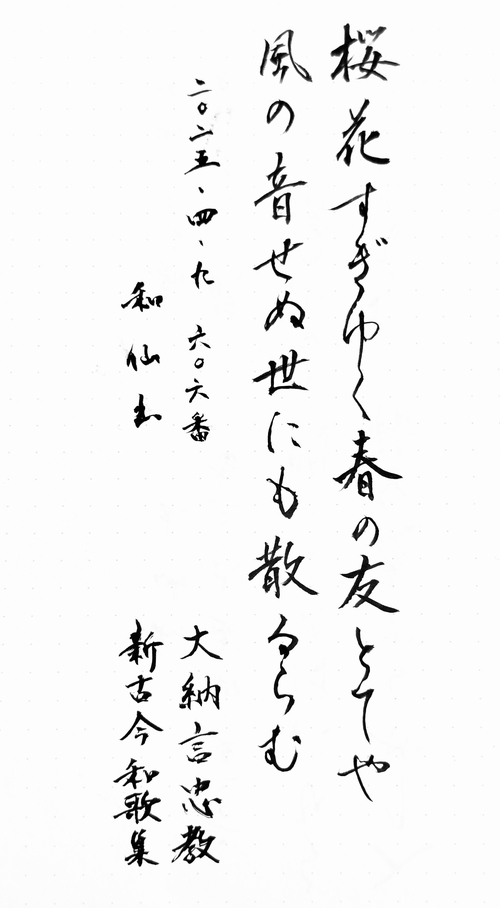 桜花すぎゆく春の友とてや
風の音せぬ世にも散るらむ
二〇二五、四、九 六〇六番
大納言忠教
和仙書
新古今和歌集